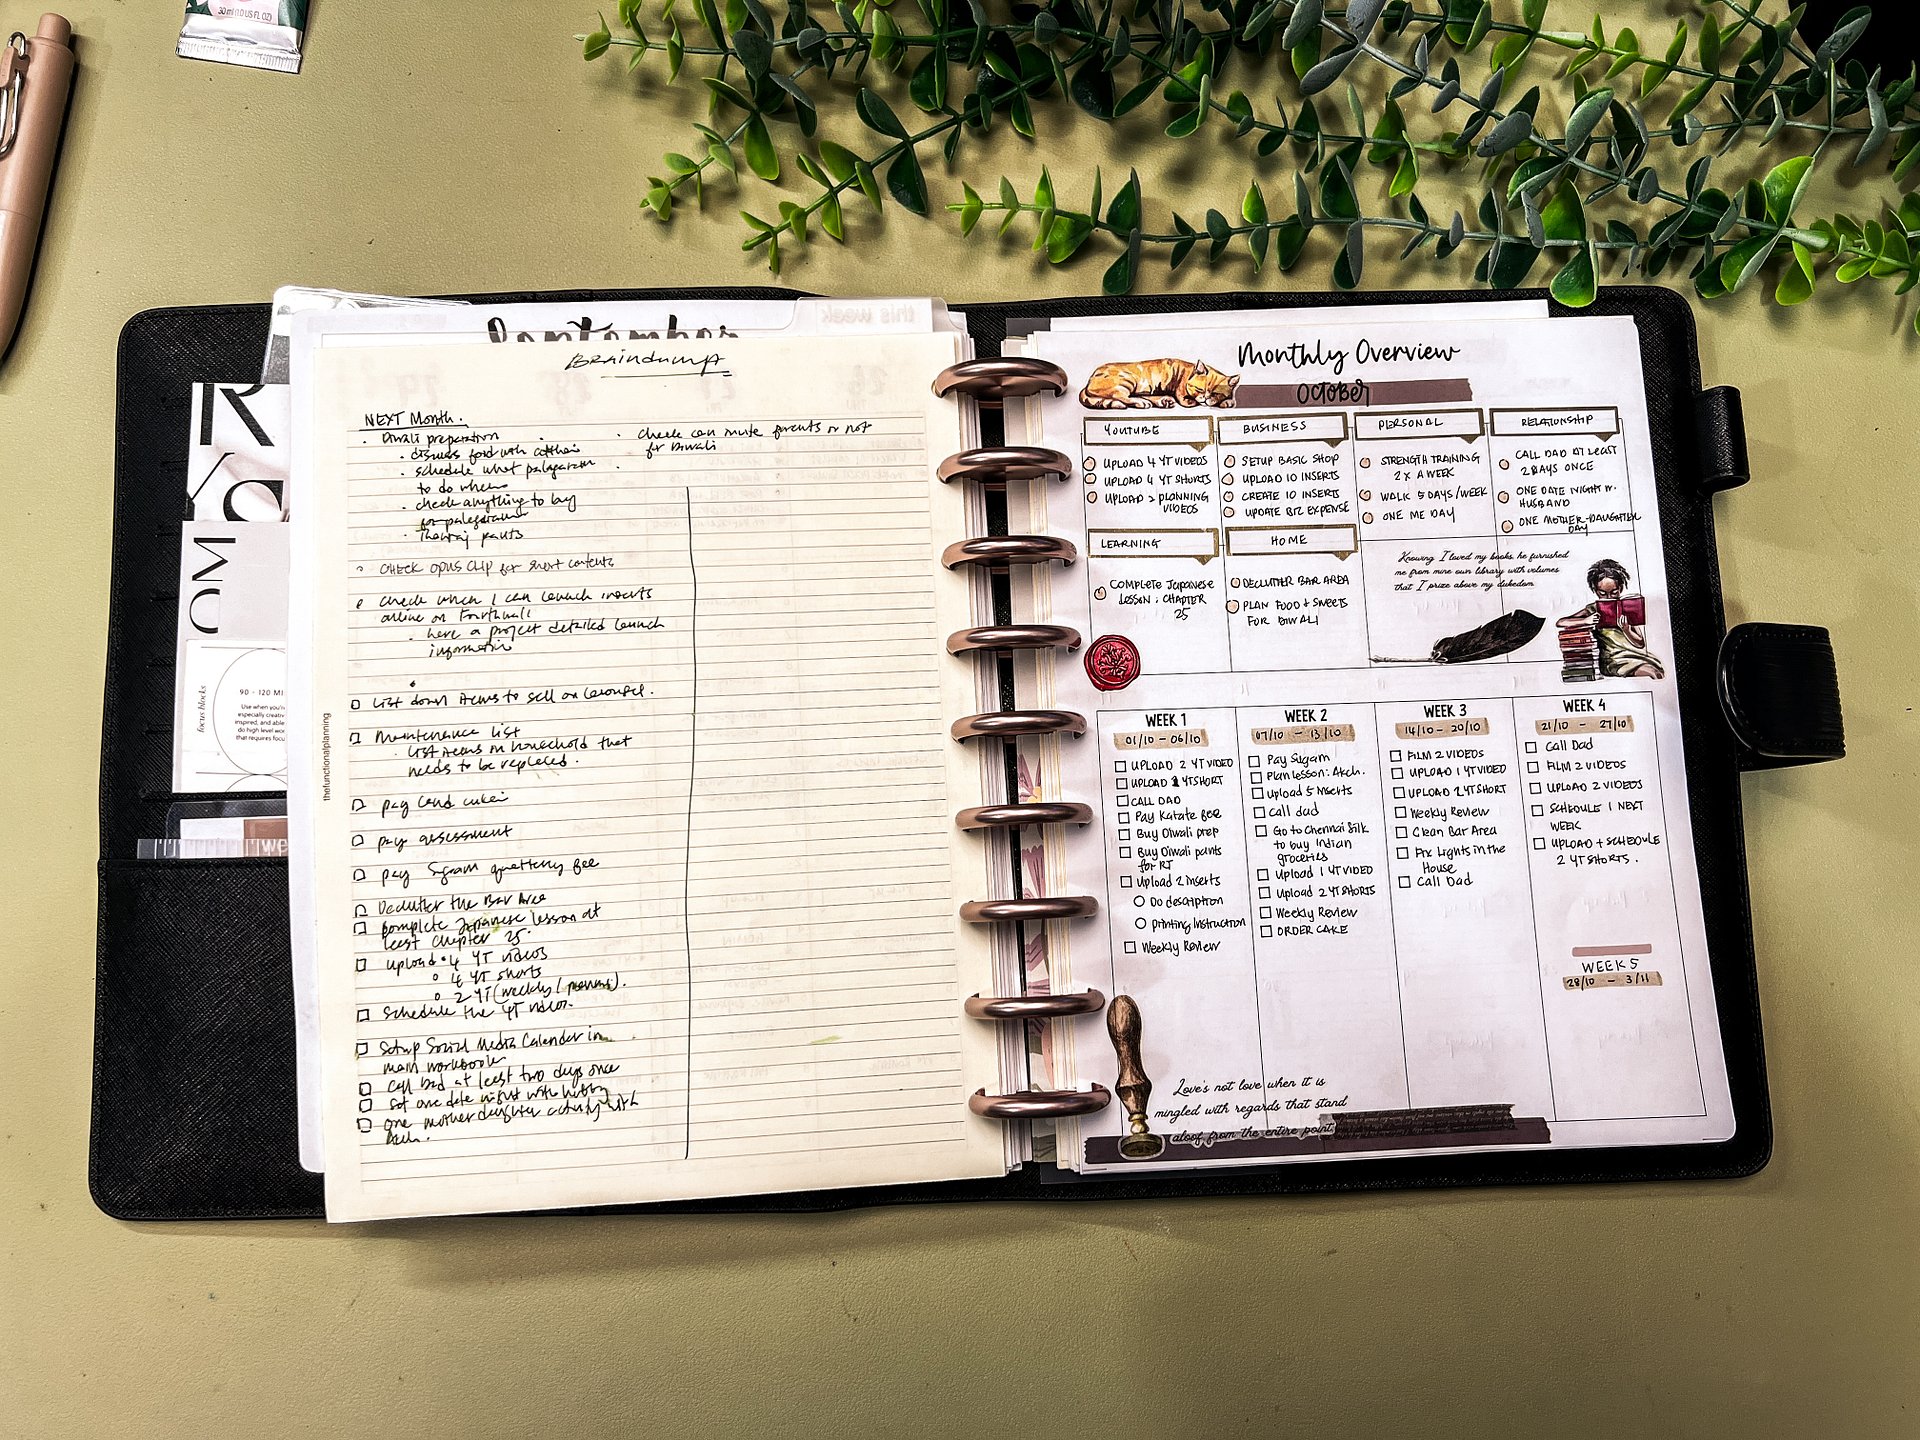 30 ml (1.0 US FL OZ)
September
this week
Braindump
NEXT Month.
Diwali preparation
discuss food with
schedule what
to do when
check anything to buy
for
pants
check can invite parents or not
for Diwali
CHECK OPUS CLIP for short contents
check when I can launch inserts
online on Fourthwall
have a project detailed launch
information
List down items to sell on Carousel.
Maintenance list
List items in household that
needs to be replaced.
pay
pay assessment
pay Sugam quarterly fee
Declutter the Bar Area
complete Japanese lesson at
least chapter 25.
upload 4 YT videos
4 YT shorts
2 YT (weekly /
Schedule the YT videos.
Setup Social Media Calendar in
main workbook
call Dad at least two days once
set one date night with hubby
one mother daughter activity with
thefunctionalplanning
OM
focus blocks
90 - 120 MI
Use when you're
especially creativ
inspired, and able
do high level wor
that requires focu
Monthly Overview
October
YOUTUBE
UPLOAD 4 YT VIDEOS
UPLOAD 4 YT SHORTS
UPLOAD 2 PLANNING
VIDEOS
BUSINESS
SETUP BASIC SHOP
UPLOAD 10 INSERTS
CREATE 10 INSERTS
UPDATE BIZ EXPENSE
PERSONAL
STRENGTH TRAINING
2 X A WEEK
WALK 5 DAYS/WEEK
ONE ME DAY
RELATIONSHIP
CALL DAD AT LEAST
2 DAYS ONCE
ONE DATE NIGHT W.
HUSBAND
ONE MOTHER-DAUGHTER
DAY
LEARNING
COMPLETE Japanese
LESSON : CHAPTER
25
HOME
DECLUTTER BAR AREA
PLAN FOOD & SWEETS
FOR DIWALI
Knowing I loved my books, he furnished
me from mine own library with volumes
that I prize above my dukedom
WEEK 1
01/10 - 06/10
UPLOAD 2 YT VIDEO
UPLOAD 1 YT SHORT
CALL DAD
Pay Karate fee
Buy Diwali prep
Buy Diwali pants
for RT
Upload 2 inserts
Do description
Printing Instruction
Weekly Review
WEEK 2
07/10 - 13/10
Pay Sugam
Plan lesson:
Upload 5 inserts
Call dad
Go to Chennai Silk
to buy Indian
groceries
Upload 1 YT VIDEO
Upload 2 YT SHORTS
Weekly Review
ORDER CAKE
WEEK 3
14/10 - 20/10
FILM 2 VIDEOS
UPLOAD 1 YT VIDEO
UPLOAD 2 YT SHORT
Weekly Review
Clean Bar Area
Fix Lights in the
House
Call Dad
WEEK 4
21/10 - 27/10
Call Dad
FILM 2 VIDEOS
UPLOAD 2 VIDEOS
SCHEDULE 1 NEXT
WEEK
UPLOAD + SCHEDULE
2 YT SHORTS.
WEEK 5
28/10 - 3/11
Love's not love when it is
mingled with regards that stand
aloof from the entire point.